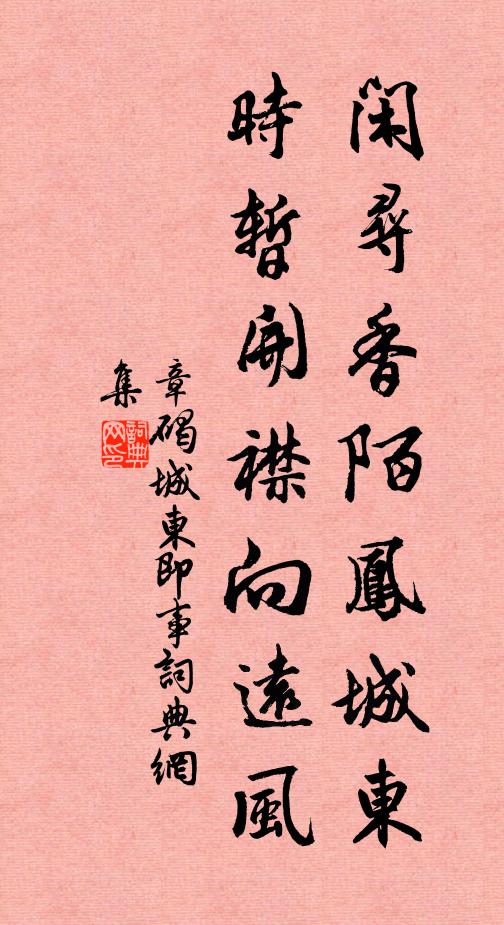 閑尋香陌鳳城東
時暫開襟向遠風
章碣城東即事詞典網
集
詞典
网印